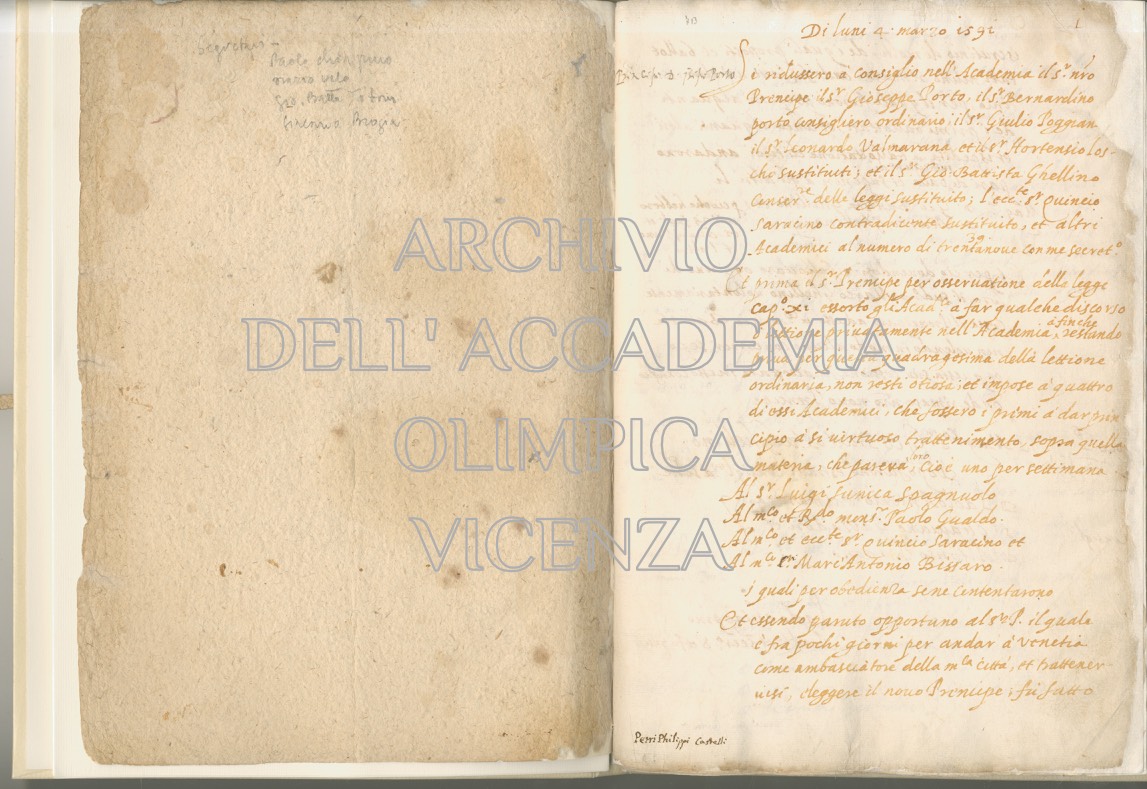 Segretari
Paolo chiappino
marzo velo
Gio. Batta Titon
ARCHIVIO
DELL'ACCADEMIA
OLIMPICA
VICENZA
1
Di luni 4 marzo 1591
Si ridussero à consiglio nell'Academia il s.r nro
Prencipe il s.r Gioseppe Porto, il s.r Bernardino
porto consigliero ordinario; il s.r Giulio Poggian
il s.r Leonardo Valmarana, et il s.r Hortensio Los-
cho sustituiti; et il s.r Gio Battista Ghellino
Conser.re delle leggi sustituito; l'ecc.te s.r Quincio
Saracino contradicente sustituito, et altri
Academici al numero di trentanoue 39 con me secret.o
Et prima il s.r Prencipe per osseruatione della legge
cap.o xi essortò gli Acad.ci à far qualche discorso
ò lettione priuatamente nell'Academia, afinche restando
priua per questa quadragesima della lettione
ordinaria, non resti otiosa; et impose à quattro
di essi Academici, che fossero i primi à dar prin
cipio à si virtuoso trattenimento, sopra quella
materia, che pareva loro, cioè uno per settimana
Al s.r Luigi Sunica Spagnuolo
Al m.co et R.do mons.r Paolo Gualdo.
Al m.co et ecc.te s.r Quincio Saracino et
Al m.co s.r Marc'Antonio Bissaro.
i quali per obedienza se ne contentarono
Et essendo paruto opportuno al s.r P. il quale
è fra pochi giorni per andar à Venetia
come ambasciatore della m.ca città, et trattener-
uisi, eleggere il nouo Prencipe; fù fatto
Petri Philippi Castelli